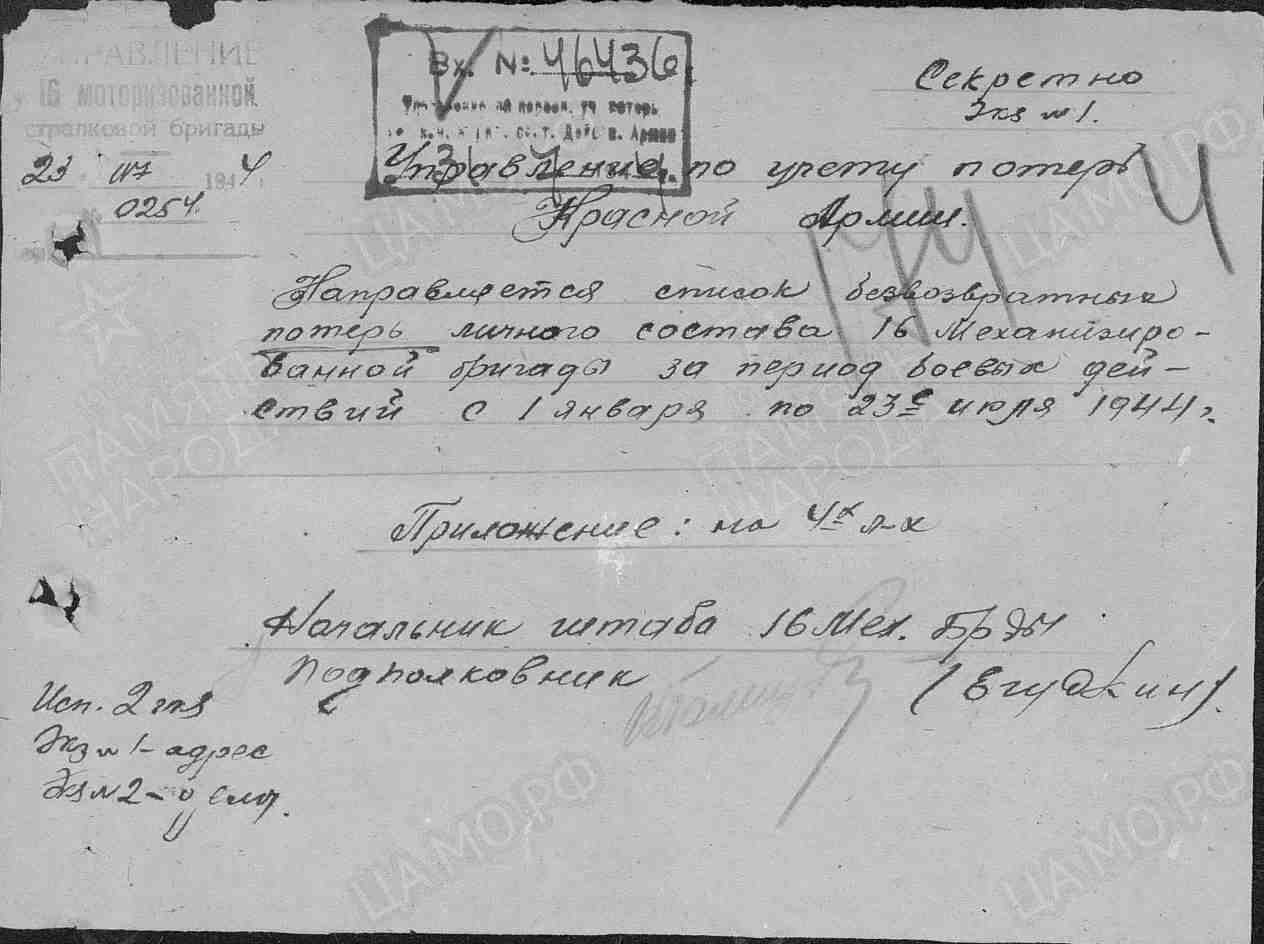 УПРАВЛЕНИЕ
16 моторизованной
стрелковой бригады
23 VII 1944
0254
Вх. № 46436
Секретно
Экз № 1.
Управление по учету потерь
Красной Армии.
Направляется список безвозвратных
потерь личного состава 16 Механизиро-
ванной бригады за период боевых дей-
ствий с 1 января по 23е июля 1944 г.
Приложение: на 4х л-х
Начальник штаба 16 Мех. Бр-ды
Подполковник (Егудкин).
Исп. 2 экз
Экз № 1 - адрес
Экз № 2 -
ПАМЯТЬ
НАРОДА
ЦАМО.РФ